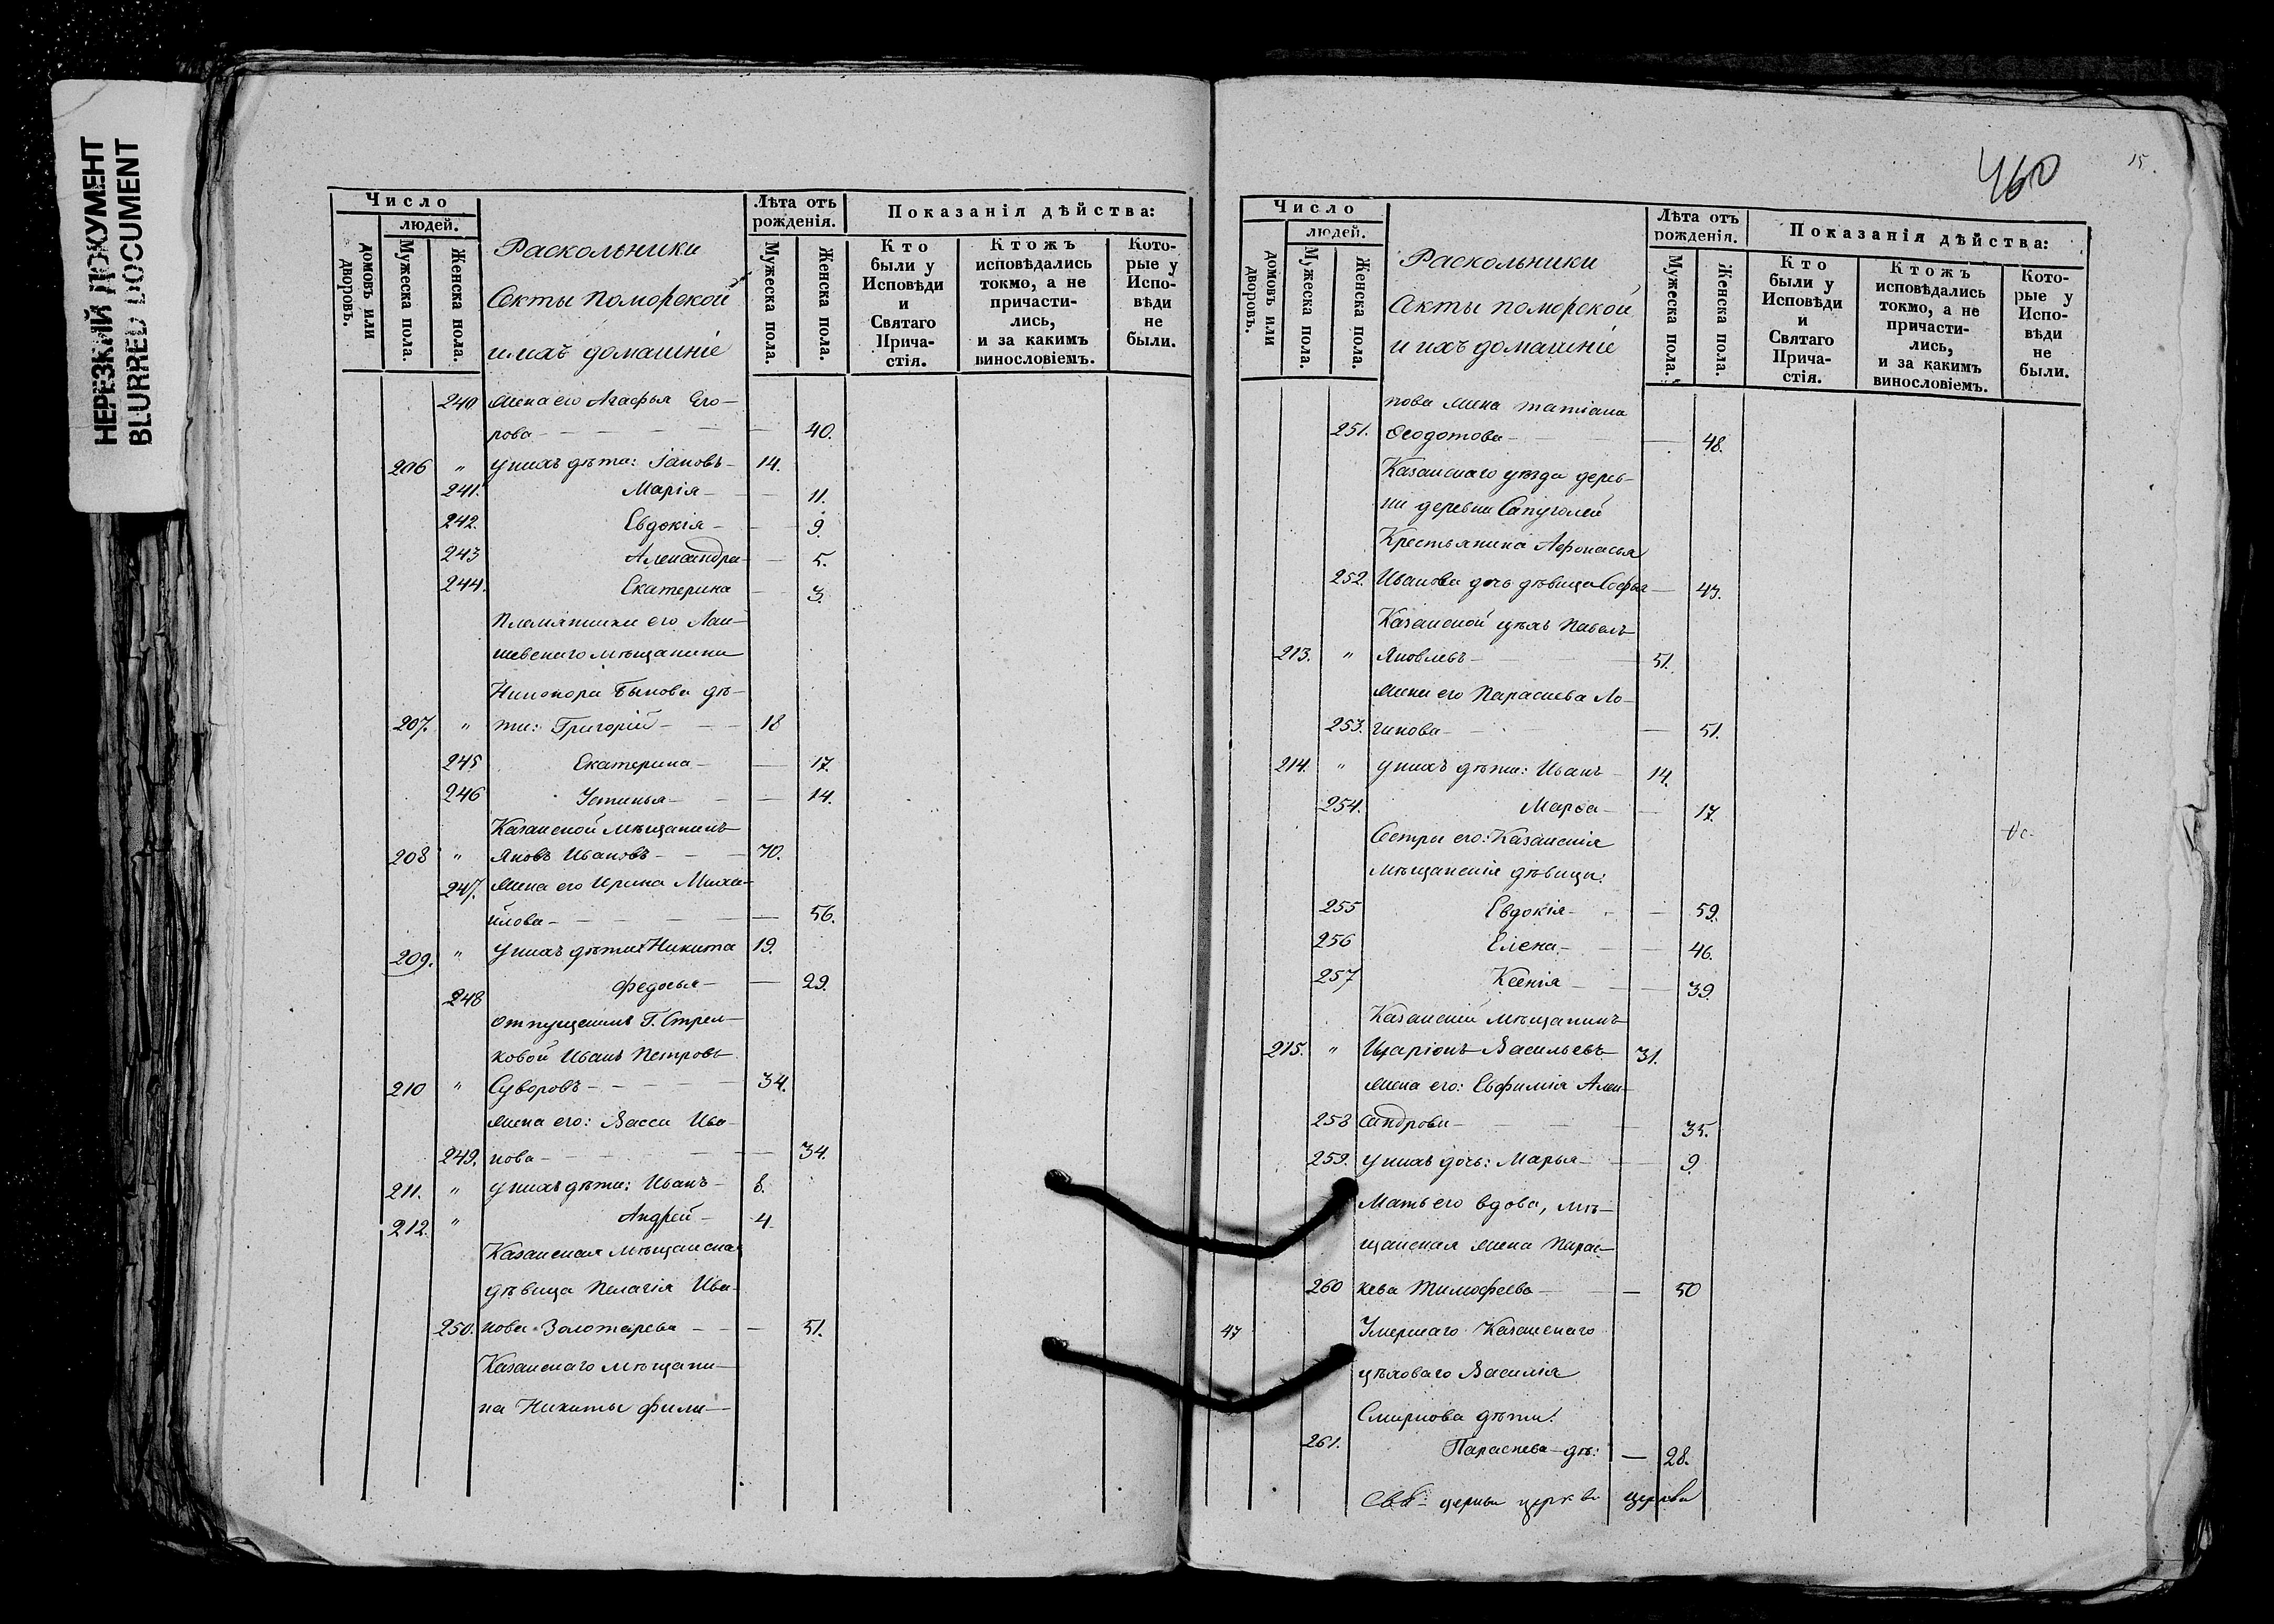 НЕРЕЗКИЙ ДОКУМЕНТ
BLURRED DOCUMENT
Число
людей.
домовъ или дворовъ.
Мужеска пола.
Женска пола.
Раскольники
Секты поморской
и ихъ домашніе
Лѣта отъ рожденія.
Мужеска пола.
Женска пола.
Показанія дѣйства:
Кто были у Исповѣди и Святаго Прича-стія.
Ктожъ исповѣдались токмо, а не причасти-лись, и за какимъ винословіемъ.
Кото-рые у Испо-вѣди не были.
240 Жена его Агафья Его-
рова — 40.
206 " у нихъ дѣти: Іаковъ — 14.
241. Марія — 11.
242. Евдокія — 9.
243 Александра — 5.
244. Екатерина — 3.
Племянники его Лаи-
шевскаго мѣщанина
Никонора Быкова дѣ-
207. " ти: Григорій — 18
245 Екатерина — 17.
246 Устинья — 14.
Казанской мѣщанинъ
208 " Яковъ Ивановъ — 70.
247. Жена его Ирина Миха-
йлова — 56.
209. " у нихъ дѣти: Никита 19.
248 Федосья — 29.
Отпущенникъ Г. Стрел-
ковой Иванъ Петровъ
210 " Суворовъ — 34.
Жена его: Васса Ива-
249. нова — 34.
211. " у нихъ дѣти: Иванъ — 8.
212. " Андрей — 4.
Казанская мѣщанска
дѣвица Пелагія Ива-
250. нова Золотарева — 51.
Казанскаго мѣщани-
на Никиты Фили-
460
15
Число
людей.
домовъ или дворовъ.
Мужеска пола.
Женска пола.
Раскольники
Секты поморской
и ихъ домашніе
Лѣта отъ рожденія.
Мужеска пола.
Женска пола.
Показанія дѣйства:
Кто были у Исповѣди и Святаго Прича-стія.
Ктожъ исповѣдались токмо, а не причасти-лись, и за какимъ винословіемъ.
Кото-рые у Испо-вѣди не были.
пова жена Татіана
251. Феодотова — 48.
Казанскаго уѣзда дерев-
ни деревни Сапуголей
Крестьянина Афонасья
252. Иванова дочь дѣвица Софья — 43.
Казанской цѣхъ Павелъ
213. " Яковлевъ — 51.
Жена его Параскева Ло-
253. гинова — 51.
214. " у нихъ дѣти: Иванъ — 14.
254. Марѳа — 17.
Сестры его: Казанскія
мѣщанскія дѣвицы:
255 Евдокія — 59.
256 Елена — 46.
257 Ксенія — 39.
Казанскій мѣщанинъ
215. " Иларіонъ Васильевъ 31.
Жена его: Евфимія Алек-
258 сандрова — 35.
259. у нихъ дочь: Марья — 9.
Мать его вдова, мѣ-
щанская жена Парас-
260 кева Тимофеева — 50
47 Умершаго Казанскаго
цѣховаго Василія
Смирнова дѣти:
261. Параскева дѣ: — 28.
церкви церкви